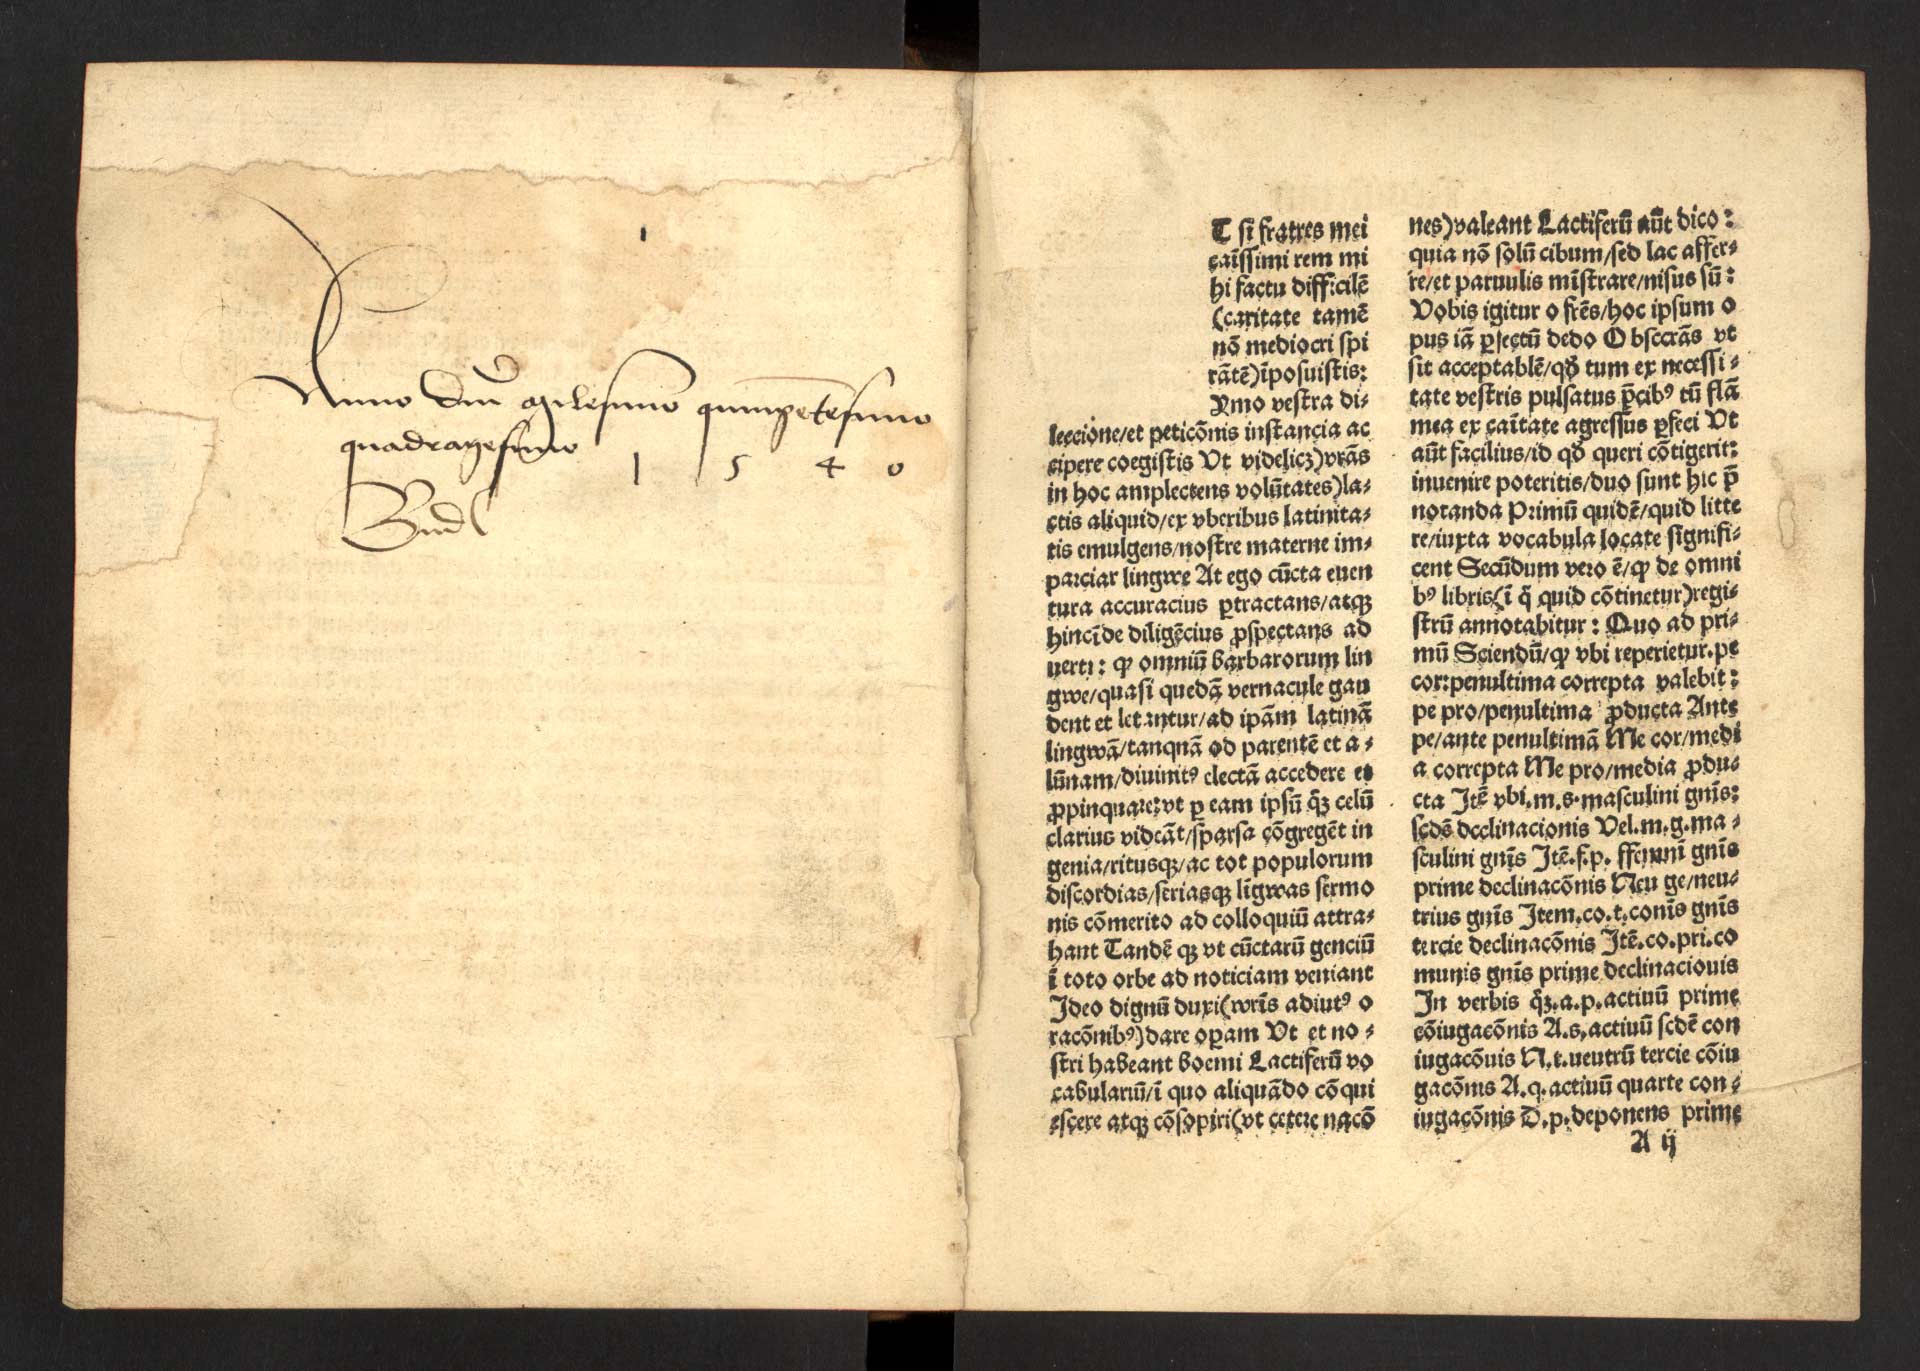 Anno Dni Milesimo quingetesimo
quadragesimo
1 5 4 0
T si fratres mei
caīssimi rem mi
hi factu difficilē
(caritate tamē
nō mediocri spi
rātē)īposuistis:
vestra di-
leccione/et peticōnis instancia ac
cipere coegistis Ut videlicꝫ)vrās
in hoc amplectens volūtates)la-
ctis aliquid/ex vberibus latinita-
tis emulgens/nostre materne im-
parciar lingwe At ego cūcta euen
tura accuracius ꝑtractans/atqꝫ
hincīde diligēcius ꝓspectans ad
uerti: ꝙ omniū barbarorum lin
gwe/quasi quedā vernacule gau
dent et letantur/ad ipām latinā
lingwā/tanquā ad parentē et a-
lūnam/diuinitꝰ electā accedere et
ꝓpinquare:vt ꝑ eam ipsū qꝫ̄ celū
clarius videāt/sparsa cōgregēt in
genia/ritusqꝫ/ac tot populorum
discordias/feriasqꝫ līgwas sermo
nis cōmerito ad colloquiū attra-
hant Tandē qꝫ vt cūctarū genciū
ī toto orbe ad noticiam veniant
Ideo dignū duxi(vrīs adiutꝰ o
racōnibꝰ)dare oꝑam Ut et no-
stri habeant boemi Lactiferū vo
cabulariū/ī quo aliquādo cō qui
escere atqꝫ cōsopiri(vt cetere nacō
nes)valeant Lactiferū aūt dico:
quia nō solū cibum/sed lac affer-
re/et paruulis mīstrare/nisus sū:
Vobis igitur o frēs/hoc ipsum o
pus iā ꝑfectū dedo Obsecrās vt
sit acceptablē/qđ tum ex necessi-
tate vestris pulsatus p̄cibꝰ tū flā
mea ex caītate agressus ꝑfeci Ut
aūt facilius/id qđ queri cōtigerit:
inuenire poteritis/duo sunt hic p̄
notanda Primū quidē/quid litte
re/iuxta vocabula locate signifi-
cent Secūdum vero ē/ꝙ de omni
bꝰ libris(ī q̄ quid cōtinetur)regi-
strū annotabitur: Quo ad pri-
mū Sciendū/ꝙ vbi reperietur.pe
cor:penultima correpta valebit:
pe pro/penultima ꝓducta Ante
pe/ante penultimā Me cor/medi
a correpta Me pro/media ꝓdu-
cta Itē vbi.m.s.masculini gnīs:
scdē declinacionis Vel.m.g.ma-
sculini gnīs Itē.f.p. ffemnī gnīs
prime declinacōnis Neu ge/neu-
trius gnīs Item.co.t.conīs gnīs
tercie declinacōnis Itē.co.pri.co
munis gnīs prime declinaciouis
In verbis qꝫ̄.a.p.actiuū prime
cōiugacōnis A.s.actiuū scdē con
iugacōuis N.t.ueutrū tercie cōiu
gacōnis A.q.actiuū quarte con-
iugacōnis D.p.deponens prime
A ij